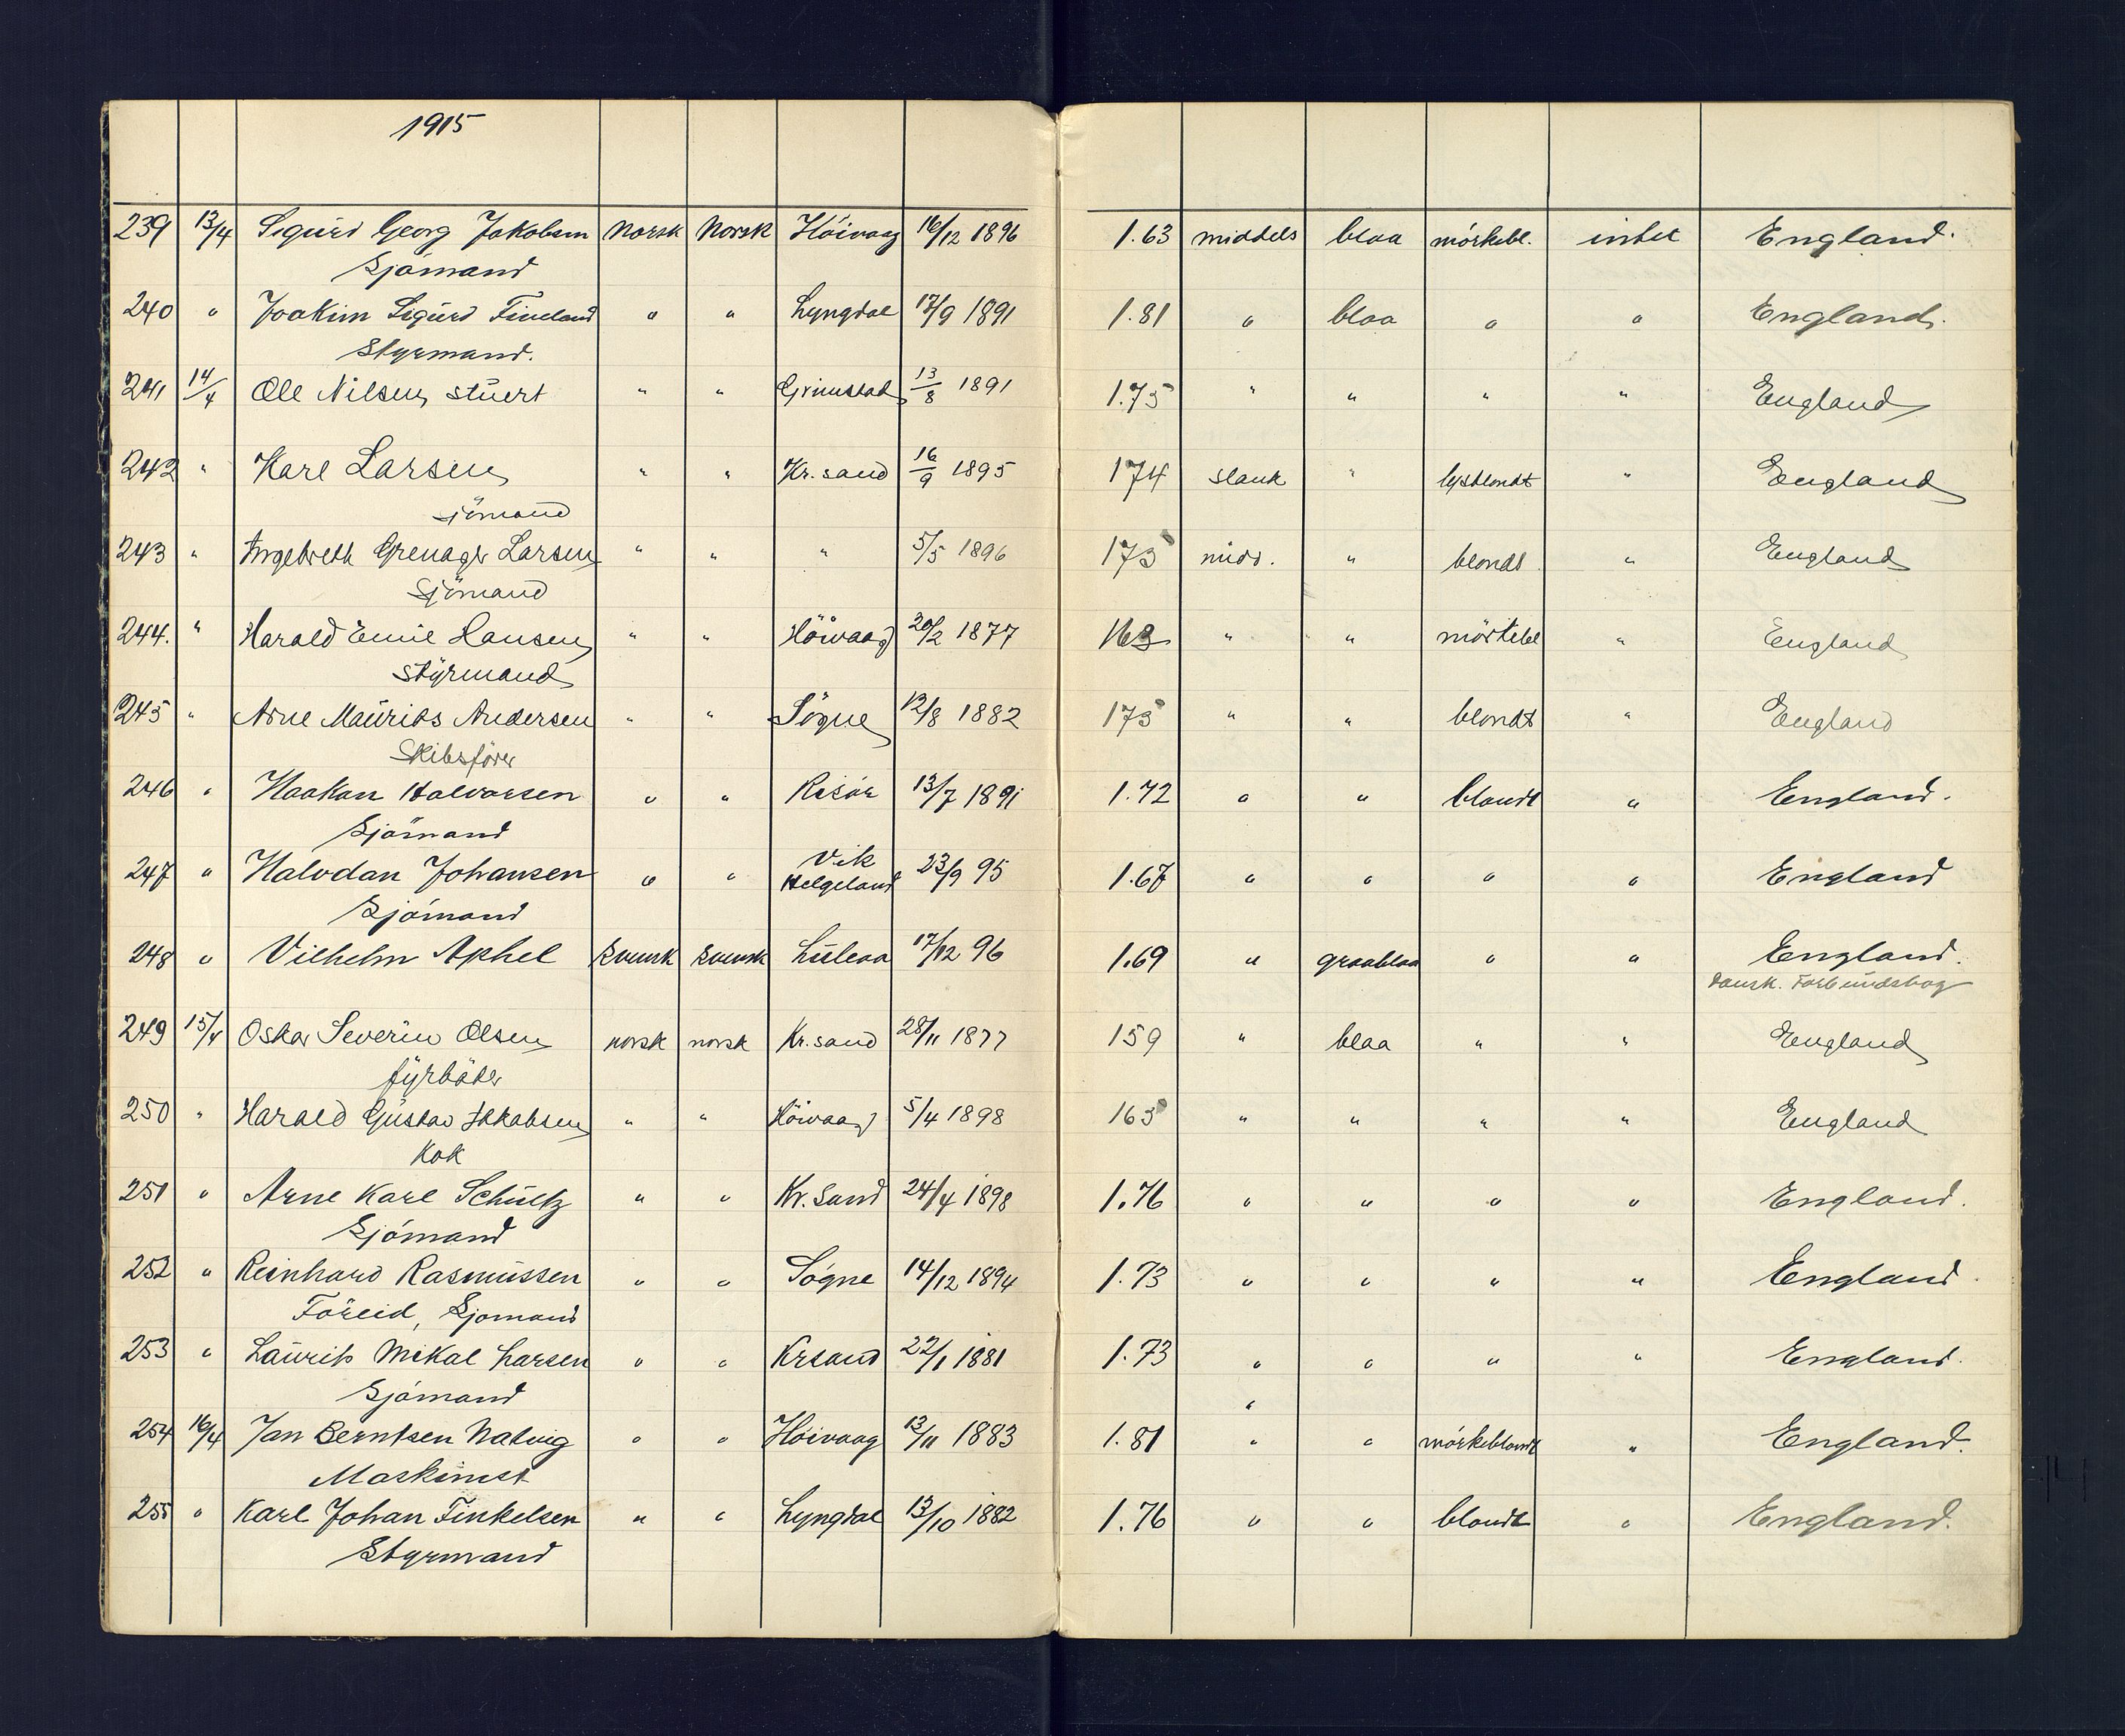 1915
239 13/4 Sigurd Georg Jakobsen Norsk Norsk Höivaag 16/12 1896 1.63 middels blaa mörkebl. intet England.
Sjömand
240 " Joakim Sigurd Fineland " " Lyngdal 17/9 1891 1.81 " blaa " " England.
Styrmand.
241 14/4 Ole Nilsen, stuert " " Grimstad 13/8 1891 1.75 " " " " England
242 " Karl Larsen " " Kr. sand 16/9 1895 174 slank " lysblondt " England
sjömand
243 " Larsen " " " 5/5 1896 173 midd. " blondt " England
Sjömand
244. " Harald Emil Hansen " " Höivaag 20/2 1877 163 " " mörkebl " England
Styrmand
245 " Arne Maurits Andersen " " Sögne 12/8 1882 173 " " blondt " England
Skibsförer
246 " Haakan Halvorsen " " Risör 13/7 1891 1.72 " " blondt " England.
Sjömand
247 " Halvdan Johansen " " Vik Helgeland 23/9 95 1.67 " " " " England
Sjömand
248 " Vilhelm Aphel Svensk Svensk Luleaa 17/12 96 1.69 " graablaa " " England.
dansk. Forbundsbog
249 15/4 Oskar Severin Olsen norsk norsk Kr. sand 28/11 1877 159 " blaa " " England
fyrböter
250 " Harald Gustav Jakobsen " " Höivaag 5/4 1898 163 " " " " England
Kok
251 " Arne Karl Schultz " " Kr. Sand 24/4 1898 1.76 " " " " England.
Sjömand
252 " Reinhard Rasmussen " " Sögne 14/12 1894 1.73 " " " " England
Töreid, Sjomand
253 " Laurits Mikal Larsen " " Krsand 22/1 1881 1.73 " " " " England.
Sjömand "
254 16/4 Jan Berntsen Natvig " " Höivaag 13/11 1883 1.81 " " mörkeblondt " England.
Maskinist
255 " Karl Johan Tinkelsen " " Lyngdal 13/10 1882 1.76 " " blondt " England.
Styrmand